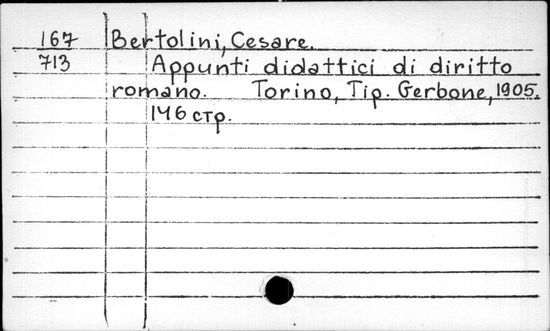 167 Bertolini, Cesare.
713 Appunti didattici di diritto
romano. Torino, Tip. Gerbone, 1905.
146 стр.